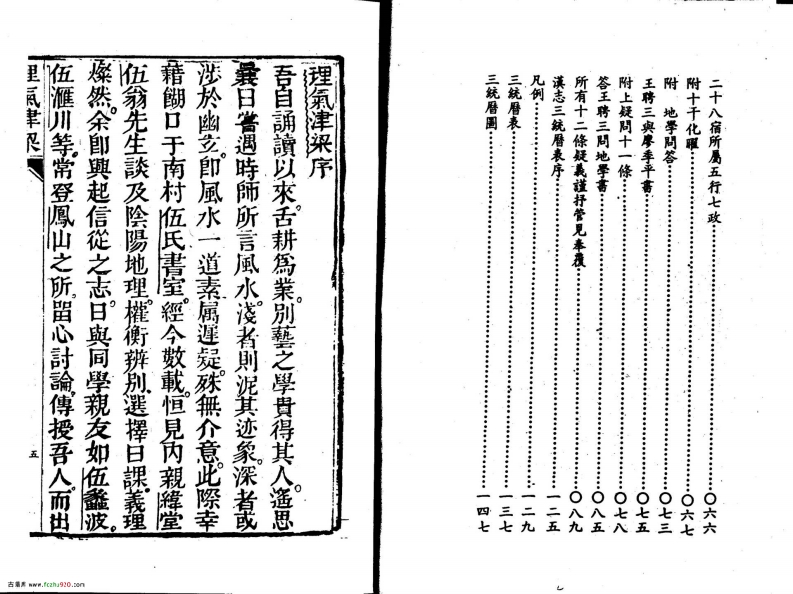 二十八宿所屬五行七政……〇六六
附十干化曜……〇六七
附　地學問答……〇七三
王聘三與廖季平書……〇七五
附上疑問十一條……〇七八
答王聘三問地學書……〇八五
所有十二條疑義謹抒管見奉覆……〇八九
漢志三統曆表序……一二五
凡例……一二九
三統曆表……一三七
三統曆圖……一四七
理氣津梁序
吾自誦讀以來。舌耕為業。別藝之學貴得其人。遙思
曩日嘗遇時師所言風水。淺者則泥其迹象。深者或
涉於幽玄。卽風水一道素屬遲疑。殊無介意。此際幸
藉餬口于南村伍氏書室。經今數載。恒見內親緯堂
伍翁先生談及陰陽地理。權衡辨別。選擇日課。義理
燦然。余卽興起信從之志。日與同學親友如伍蠡波。
伍滙川等。常登鳳山之所。畱心討論。傳授吾人。而出
理氣津梁
五
古易库 www.fczhu920.com